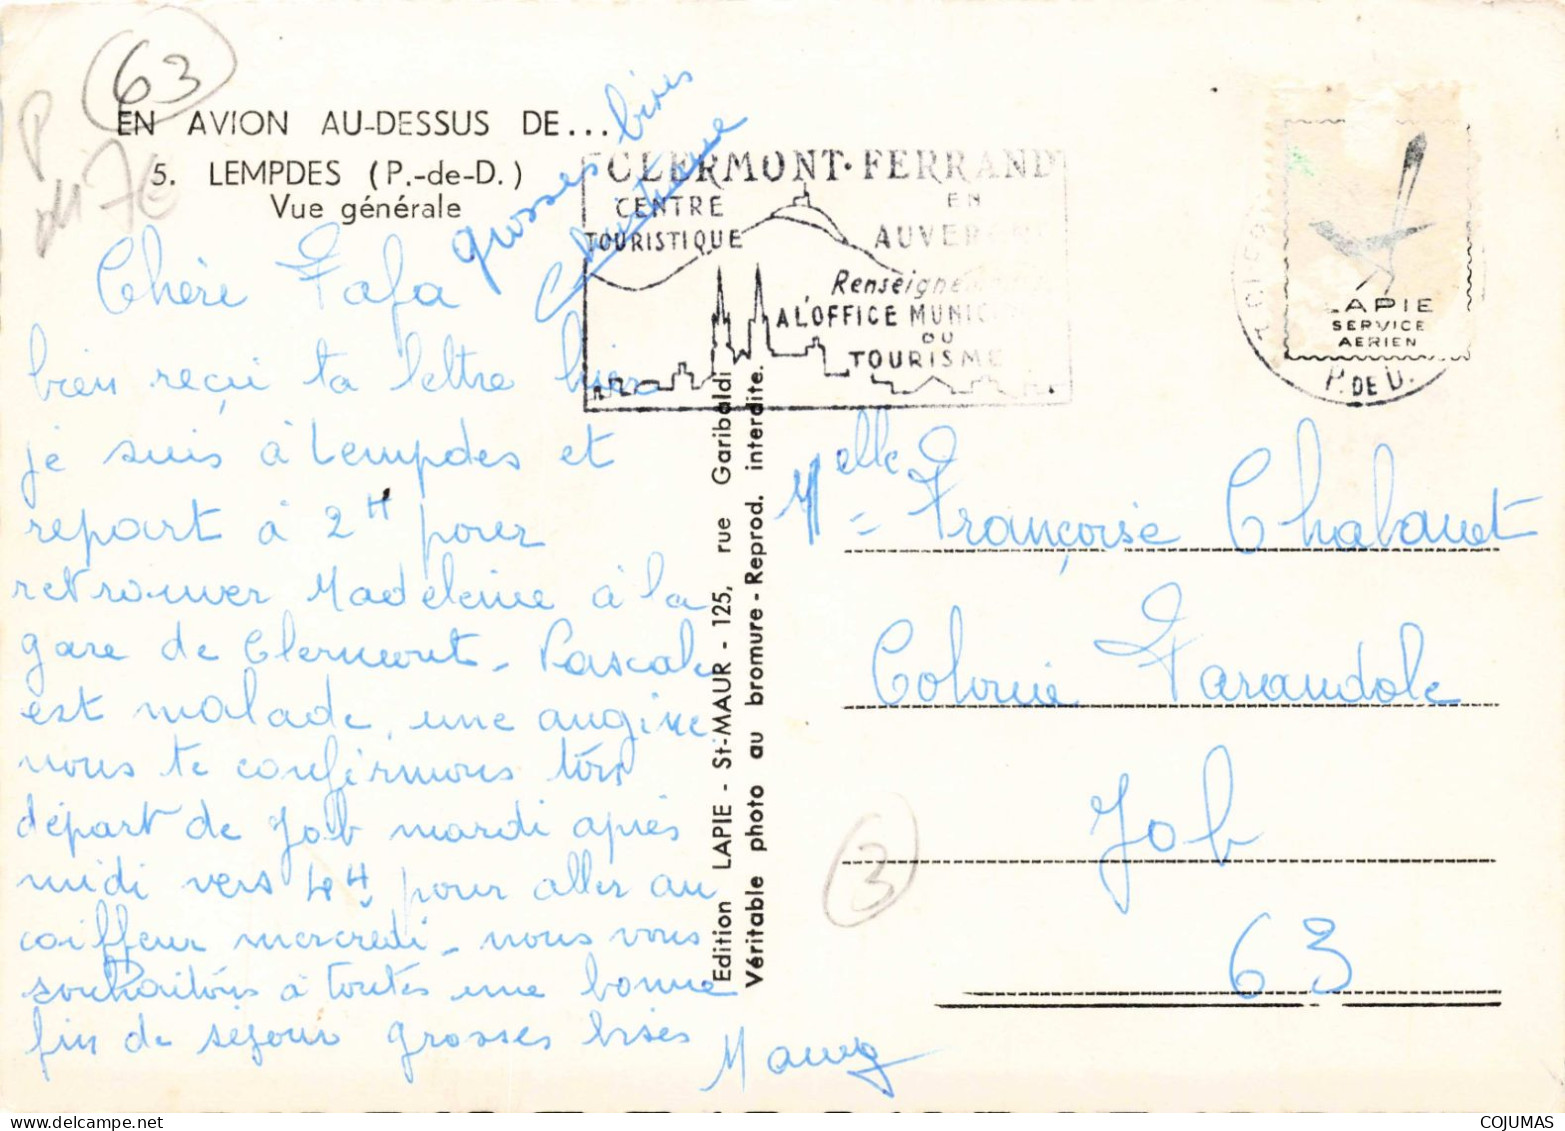 63
P
7€
EN AVION AU-DESSUS DE...
5. LEMPDES (P.-de-D.)
Vue générale
grosses bises
Christiane
CLERMONT-FERRAND
CENTRE
TOURISTIQUE
EN
AUVERGNE
Renseignements
A L'OFFICE MUNICIPAL
DU
TOURISME
LAPIE
SERVICE
AERIEN
P. DE D.
Chère Fafa
bien reçu ta lettre hier
je suis à Lempdes et
repart à 2H pour
retrouver Madeleine à la
gare de Clermont - Pascale
est malade, une angine.
nous te confirmons ton
départ de Job mardi après
midi vers 4H pour aller au
coiffeur mercredi - nous vous
souhaitons à toutes une bonne
fin de séjour grosses bises
Edition LAPIE - St-MAUR - 125, rue Garibaldi
Véritable photo au bromure - Reprod. interdite.
Melle Françoise Chabanet
Colonie Farandole
Job
63
3
COJUMAS